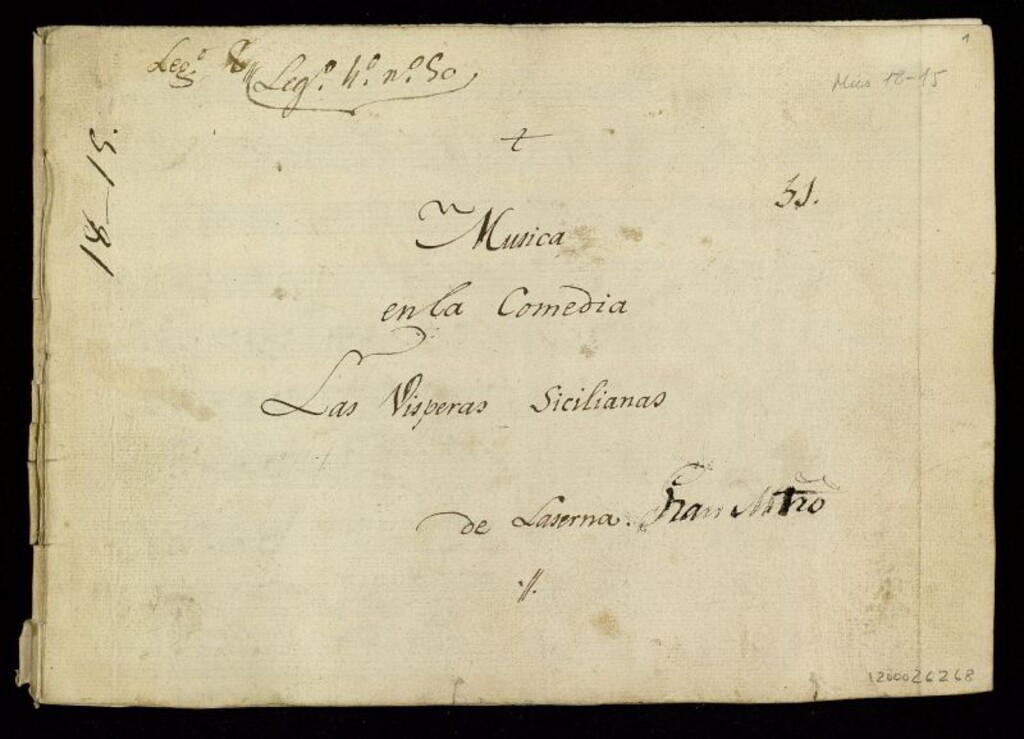 Leg.º
Leg.º 4.º n.º 50
1
Mús 18-15
18-15.
t
51.
Musica
en la Comedia
Las Visperas Sicilianas
de Laserna. Gran Mtro
//.
1200026268